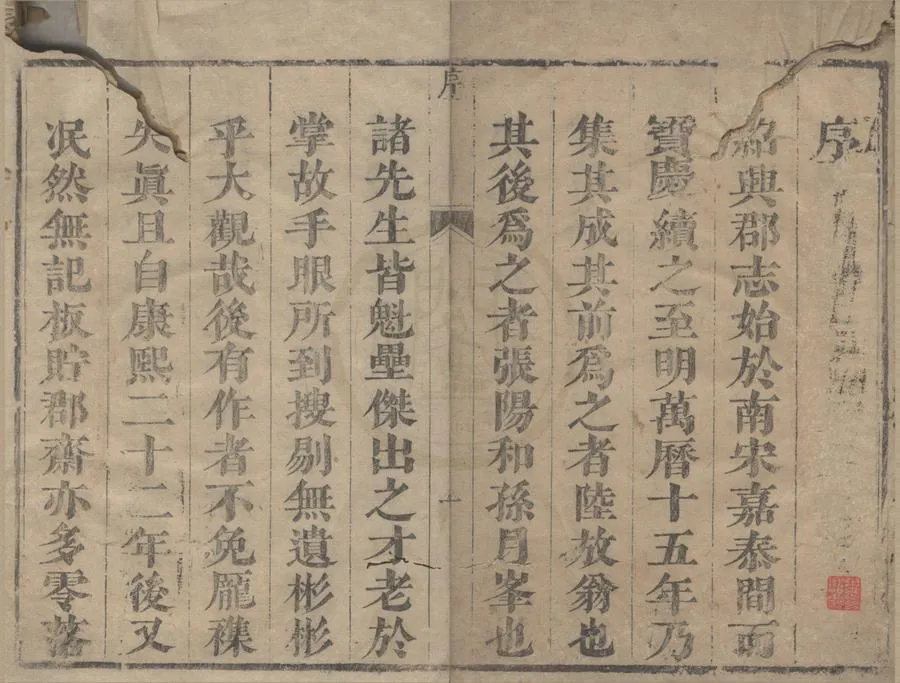 序
紹興郡志始於南宋嘉泰間而
寶慶續之至明萬曆十五年乃
集其成其前爲之者陸放翁也
其後爲之者張陽和孫月峯也
序
一
諸先生皆魁壘傑出之才老於
掌故手眼所到搜剔無遺彬彬
乎大觀哉後有作者不免龎襍
失眞且自康熙二十二年後又
泯然無記板貯郡齋亦多零落